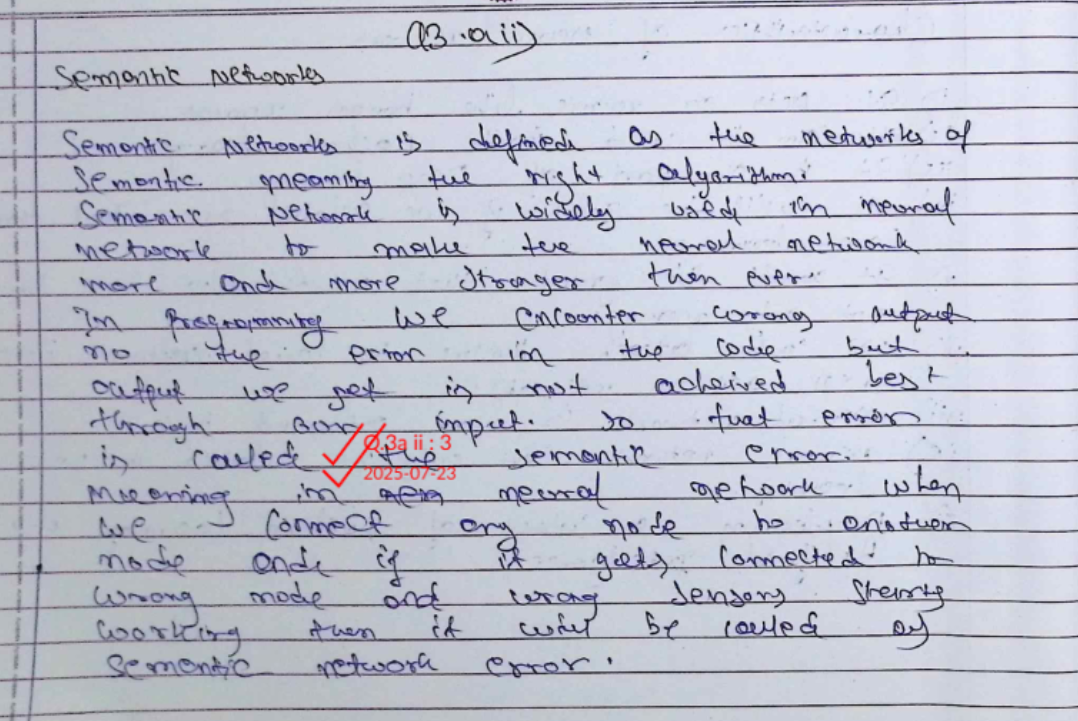 Q3.aii)
Semantic Networks
Semantic Networks is defined as the networks of
Semantic meaning the right algorithm.
Semantic Network is widely used in neural
network to make the neural network
more and more stronger then ever.
In Programming we encounter wrong output
no the error in the code but
output we get is not acheived best
through our input. so that error
is called the semantic error.
Q.3a ii : 3
2025-07-23
Meaning in neural network when
we connect any node to another
node and if it gets connected to
wrong node and wrong sensors
working then it will be called as
semantic network error.